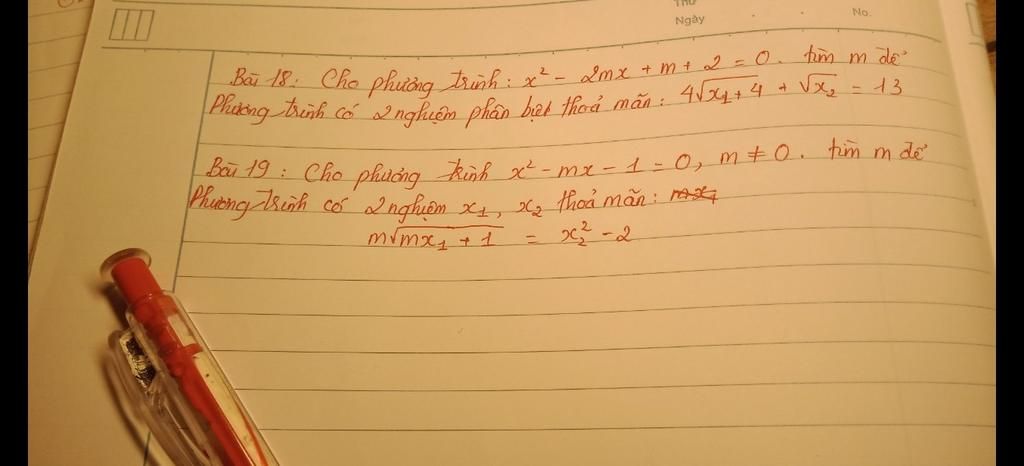 Thứ
Ngày . . No.
Bài 18: Cho phương trình: x² - 2mx + m + 2 = 0. tìm m để
Phương trình có 2 nghiệm phân biệt thoả mãn: 4√x₁+4 + √x₂ = 13
Bài 19: Cho phương trình x² - mx - 1 = 0, m ≠ 0. tìm m để
Phương trình có 2 nghiệm x₁, x₂ thoả mãn:
m√mx₁ + 1 = x₂² - 2